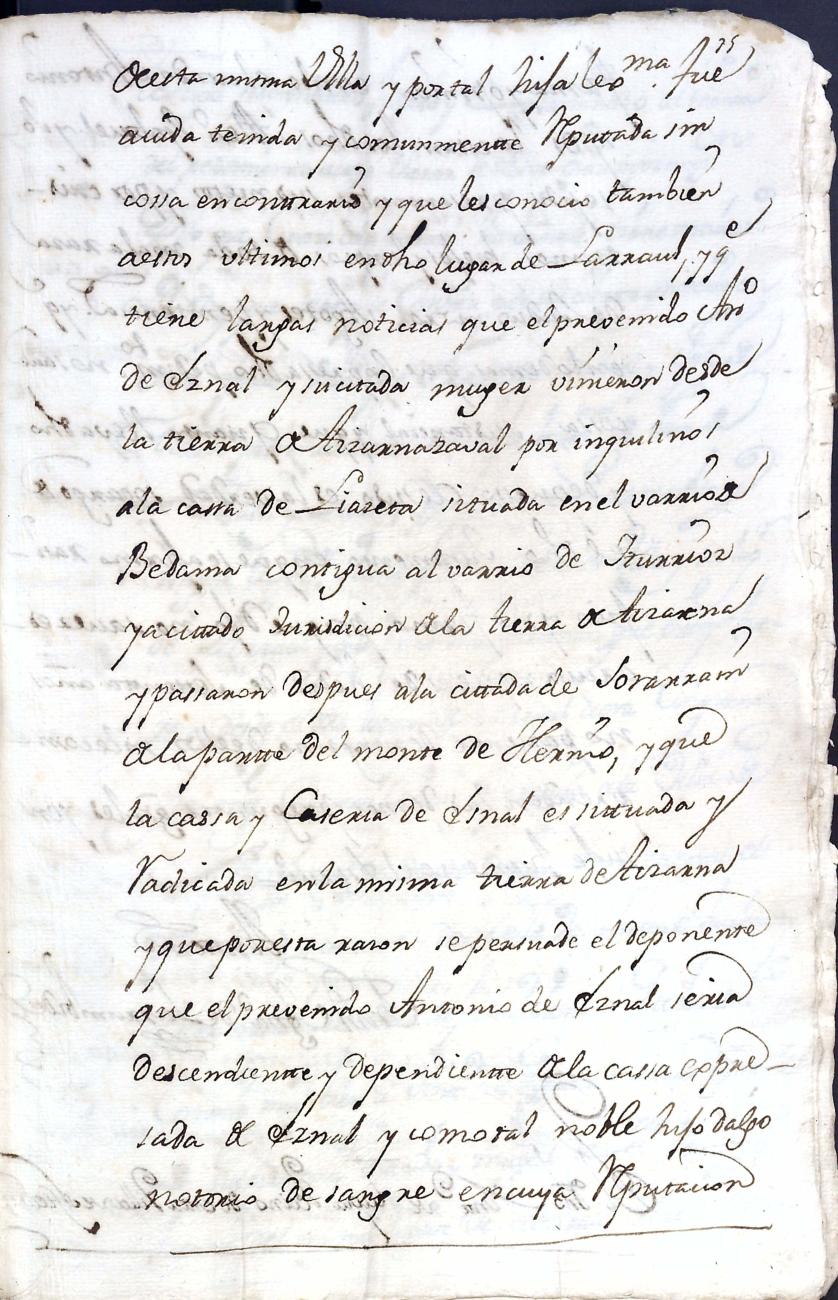 25
de esta misma Villa y por tal hija lexma. fue
auida tenida y comunmentte Reputada sin
cossa en conttrario y que les conocio tambien
a estos ultimos en dho lugar de Larraul, y qe
tiene largas noticias que el prevenido Anto
de Eznal y su citada muger vinieron desde
la tierra de Aizarnazaval por inquilinos
a la cassa de Liazeta situada en el varrio de
Bedama contigua al varrio de Iturrioz
ya cittado Jurisdicion de la tierra de Aizarna
y passaron despues a la cittada de Sorarrain
de la partte del monte de Hernio, y que
la cassa y Caseria de Esnal es sittuada y
Radicada en la misma tierra de Aizarna
y que por esta razon se persuade el deponente
que el prevenido Antonio de Eznal seria
descendientte y dependientte de la cassa expre-
sada de Eznal y como tal noble hijo dalgo
notorio de sangre en cuya Reputacion